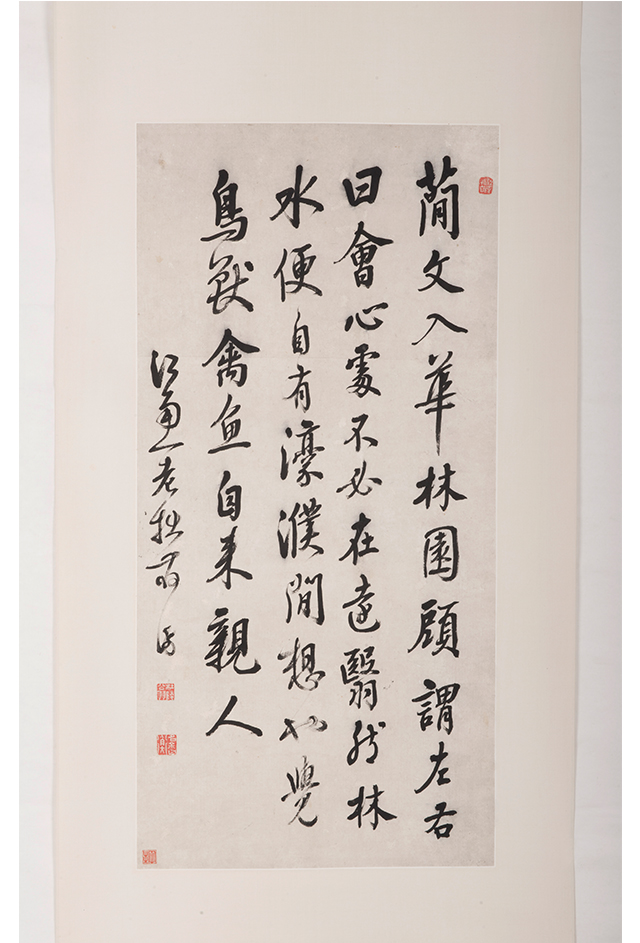 簡文入華林園顧謂左右
曰會心處不必在遠翳然林
水便自有濠濮間想也覺
鳥獸禽魚自來親人